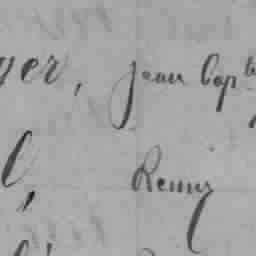 ger, jean Bap^te
l, Remy